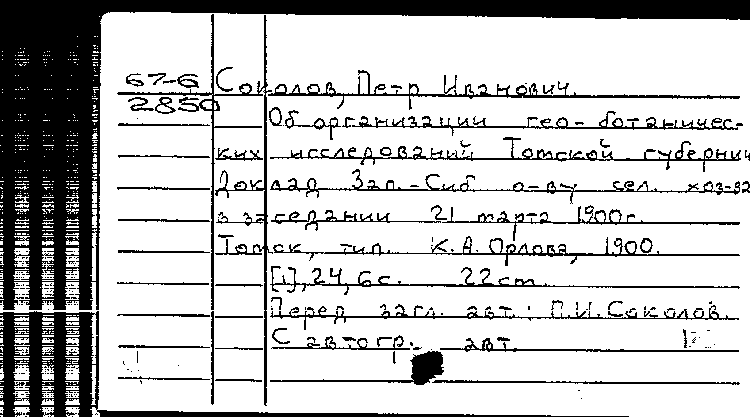 67-6 Соколов, Петр Иванович.
2850
Об организации гео-ботаничес-
ких исследований Томской губернии
Доклад Зап.-Сиб. о-ву сел. хоз-ва
в заседании 21 марта 1900г.
Томск, тип. К.А. Орлова, 1900.
[1], 24, 6 с. 22 cm.
Перед загл. авт.: П.И. Соколов.
С автогр. авт.